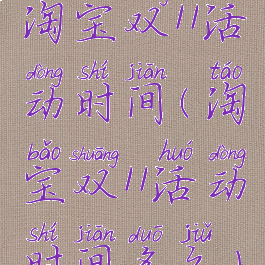 淘宝双11活
dòng shí jiān táo
动时间(淘
bǎo shuāng huó dòng
宝双11活动
shí jiān duō jiǔ
时间多久)